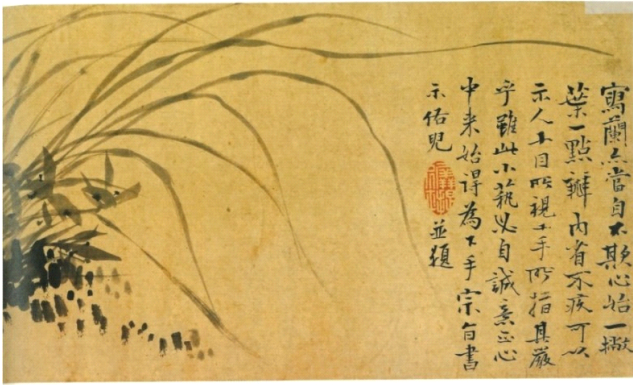 寫蘭亦當自不欺心始一撇
葉一點瓣內省不疚可以
示人十目所視十手所指其嚴
乎雖此小藝必自誠意正心
中来始得為下手宗旨書
示佑兒
並題